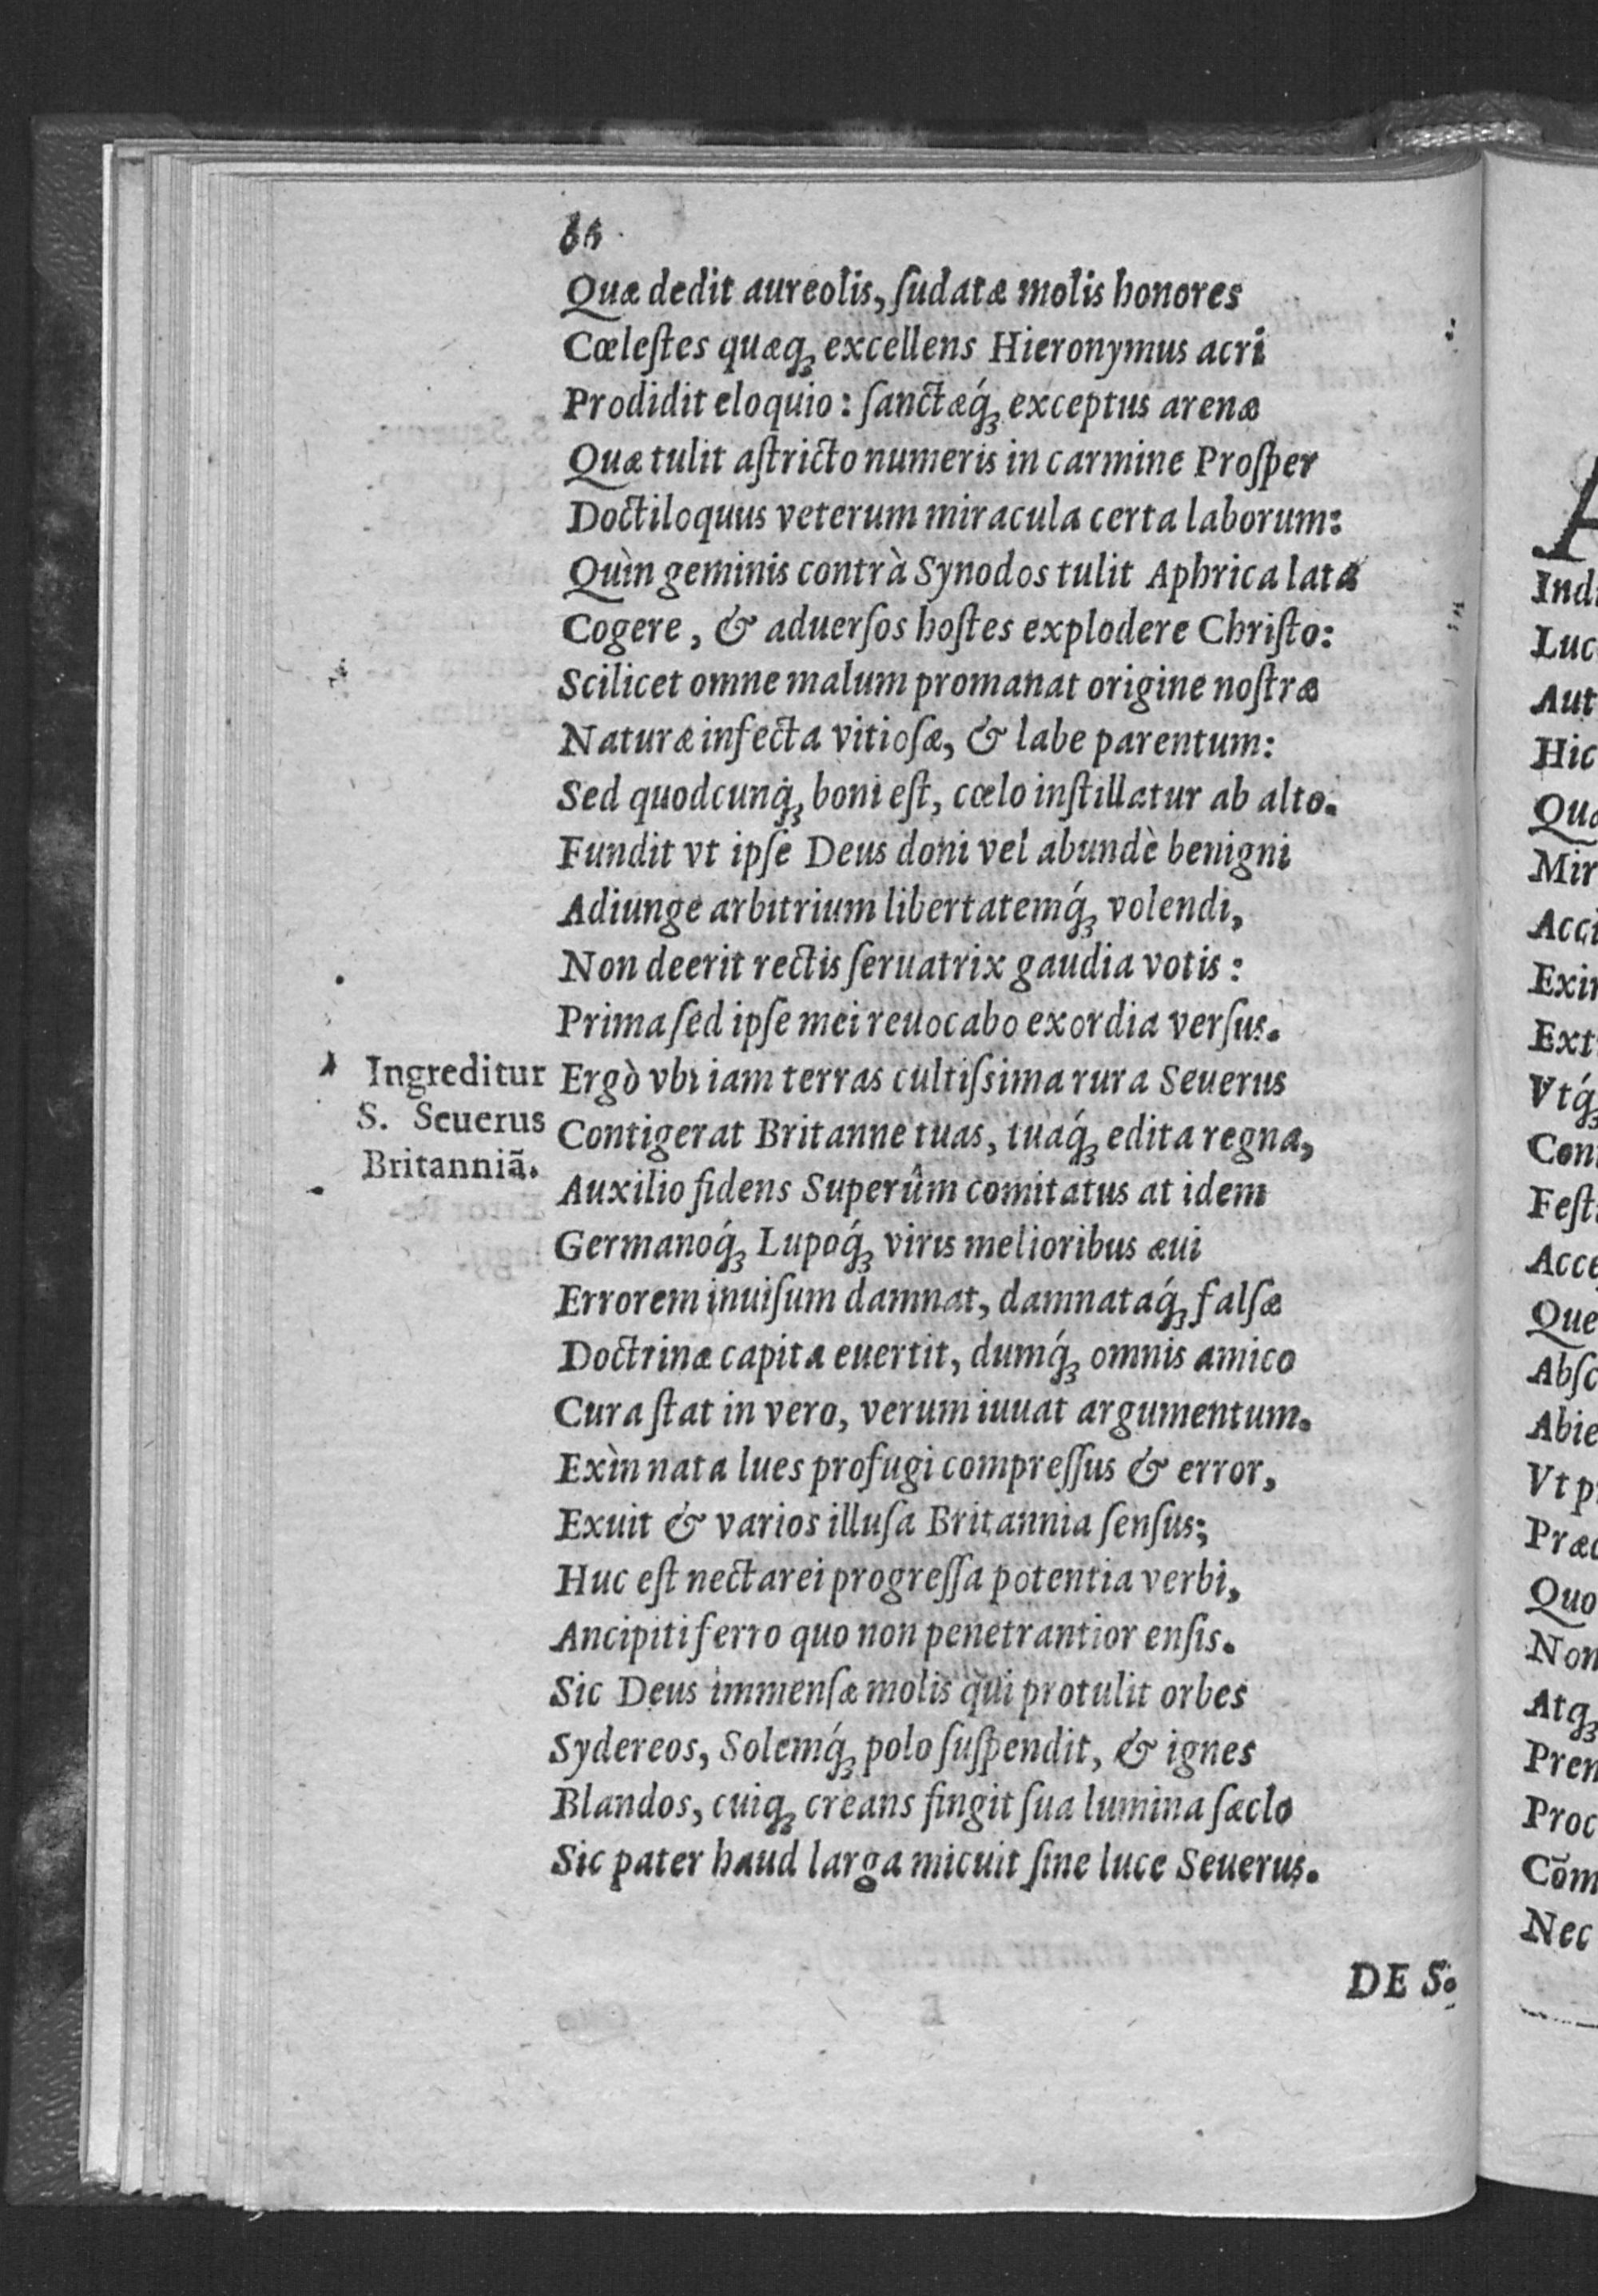 66
Quæ dedit aureolis, ſudatæ molis honores
Cœleſtes quæq́ꝫ excellens Hieronymus acri
Prodidit eloquio: ſanctæq́ꝫ exceptus arenæ
Quæ tulit aſtricto numeris in carmine Proſper
Doctiloquus veterum miracula certa laborum:
Quìn geminis contrà Synodos tulit Aphrica lata
Cogere, & aduerſos hoſtes explodere Chriſto:
Scilicet omne malum promanat origine noſtræ
Naturæ infecta vitioſæ, & labe parentum:
Sed quodcunq́ꝫ boni eſt, cœlo inſtillatur ab alto.
Fundit vt ipſe Deus doni vel abundè benigni
Adiunge arbitrium libertatemq́ꝫ volendi,
Non deerit rectis ſeruatrix gaudia votis:
Prima ſed ipſe mei reuocabo exordia verſus.
Ingreditur
S. Seuerus
Britanniã.
Ergò vbi iam terras cultiſsima rura Seuerus
Contigerat Britanne tuas, tuaq́ꝫ edita regna,
Auxilio fidens Superûm comitatus at idem
Germanoq́ꝫ Lupoq́ꝫ viris melioribus æui
Errorem inuiſum damnat, damnataq́ꝫ falſæ
Doctrinæ capita euertit, dumq́ꝫ omnis amico
Cura ſtat in vero, verum iuuat argumentum.
Exìn nata lues profugi compreſſus & error,
Exuit & varios illuſa Britannia ſenſus;
Huc eſt nectarei progreſſa potentia verbi,
Ancipiti ferro quo non penetrantior enſis.
Sic Deus immenſæ molis qui protulit orbes
Sydereos, Solemq́ꝫ polo ſuſpendit, & ignes
Blandos, cuiqꝫ creans fingit ſua lumina ſæclo
Sic pater haud larga micuit ſine luce Seuerus.
DE S.
A
Ind
Luc
Aut
Hic
Qua
Mir
Acci
Exi
Ext
Vtq́ꝫ
Con
Feſt
Acce
Que
Abſc
Abie
Vt p
Præ
Quo
Non
Atqꝫ
Pre
Proc
Cõm
Nec